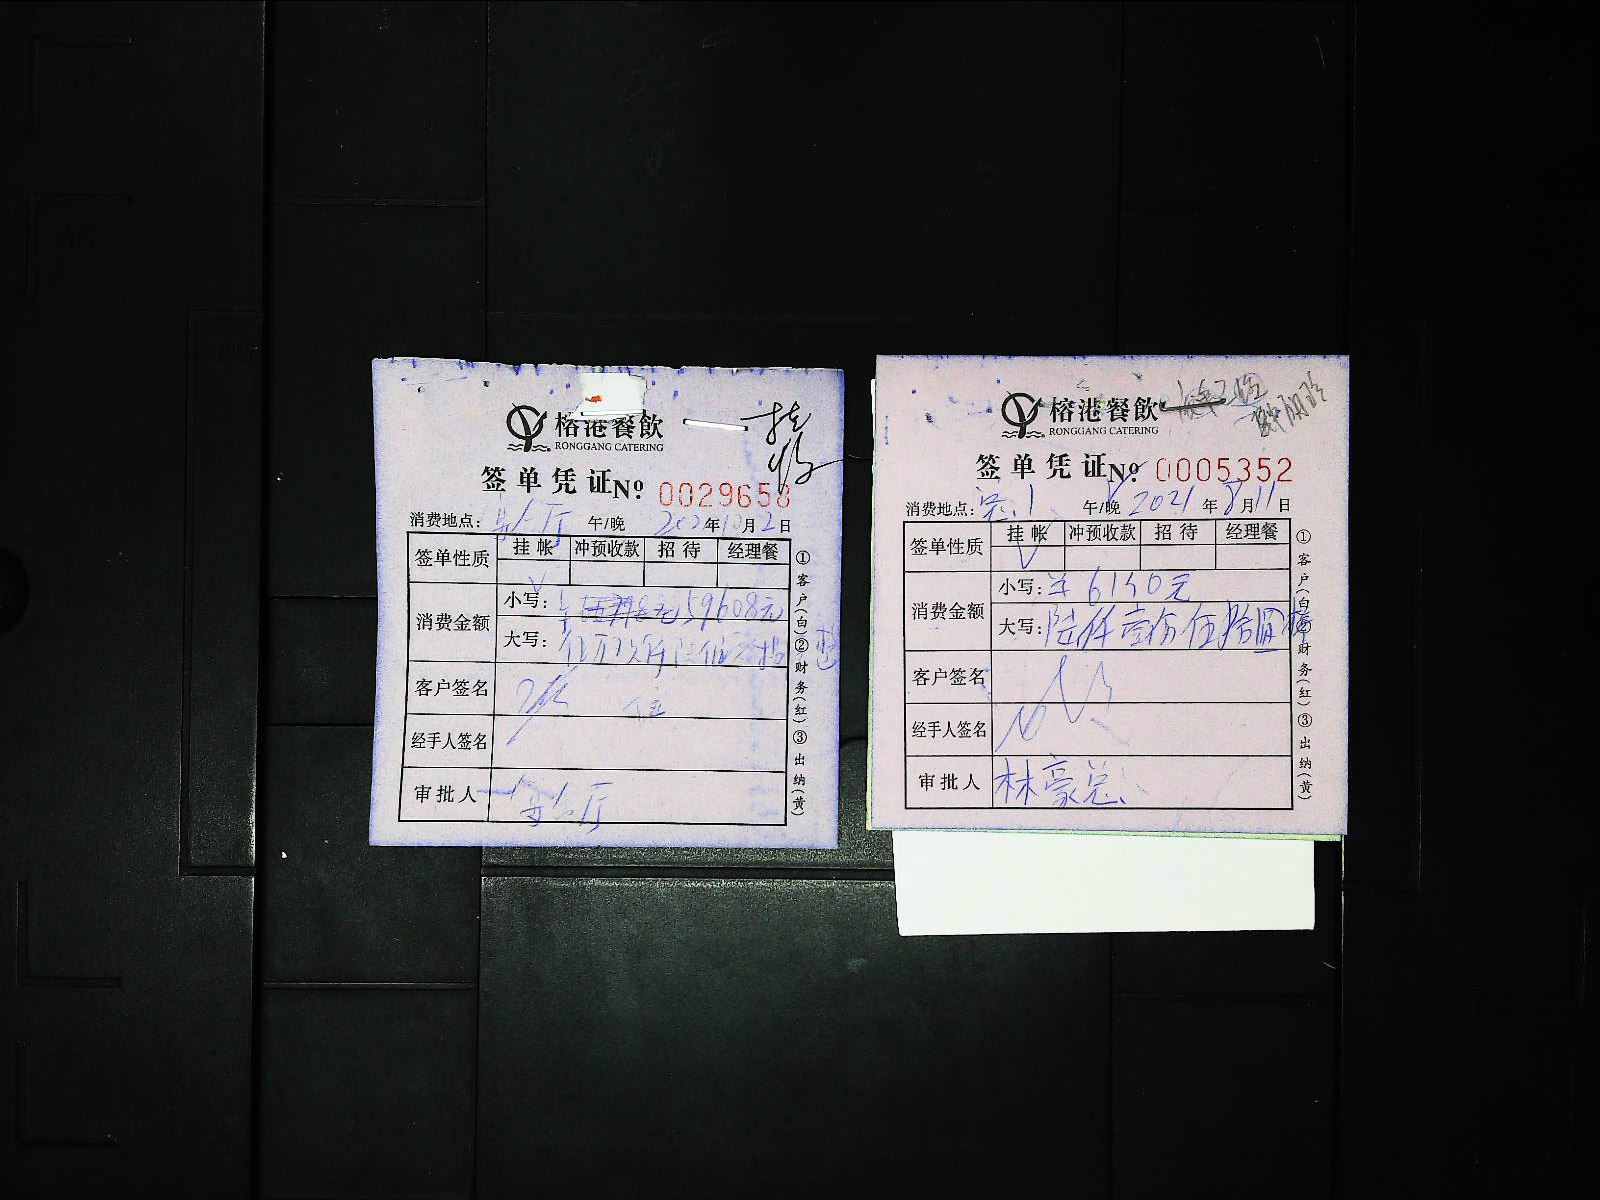 榕港餐飲
RONGGANG CATERING
签单凭证 № 0029658
消费地点： 厅 午/晚 2021年10月2日
签单性质 挂帐 冲预收款 招待 经理餐
消费金额 小写： 59608元
大写：
客户签名
经手人签名
审批人 厅
①客户(白)②财务(红)③出纳(黄)
挂
榕港餐飲
RONGGANG CATERING
签单凭证 № 0005352
消费地点： 总1 午/晚 2021年8月11日
签单性质 挂帐 冲预收款 招待 经理餐
√
消费金额 小写：¥6150元
大写：陆仟壹佰伍拾圆整
客户签名
经手人签名
审批人 林豪总
①客户(白)②财务(红)③出纳(黄)